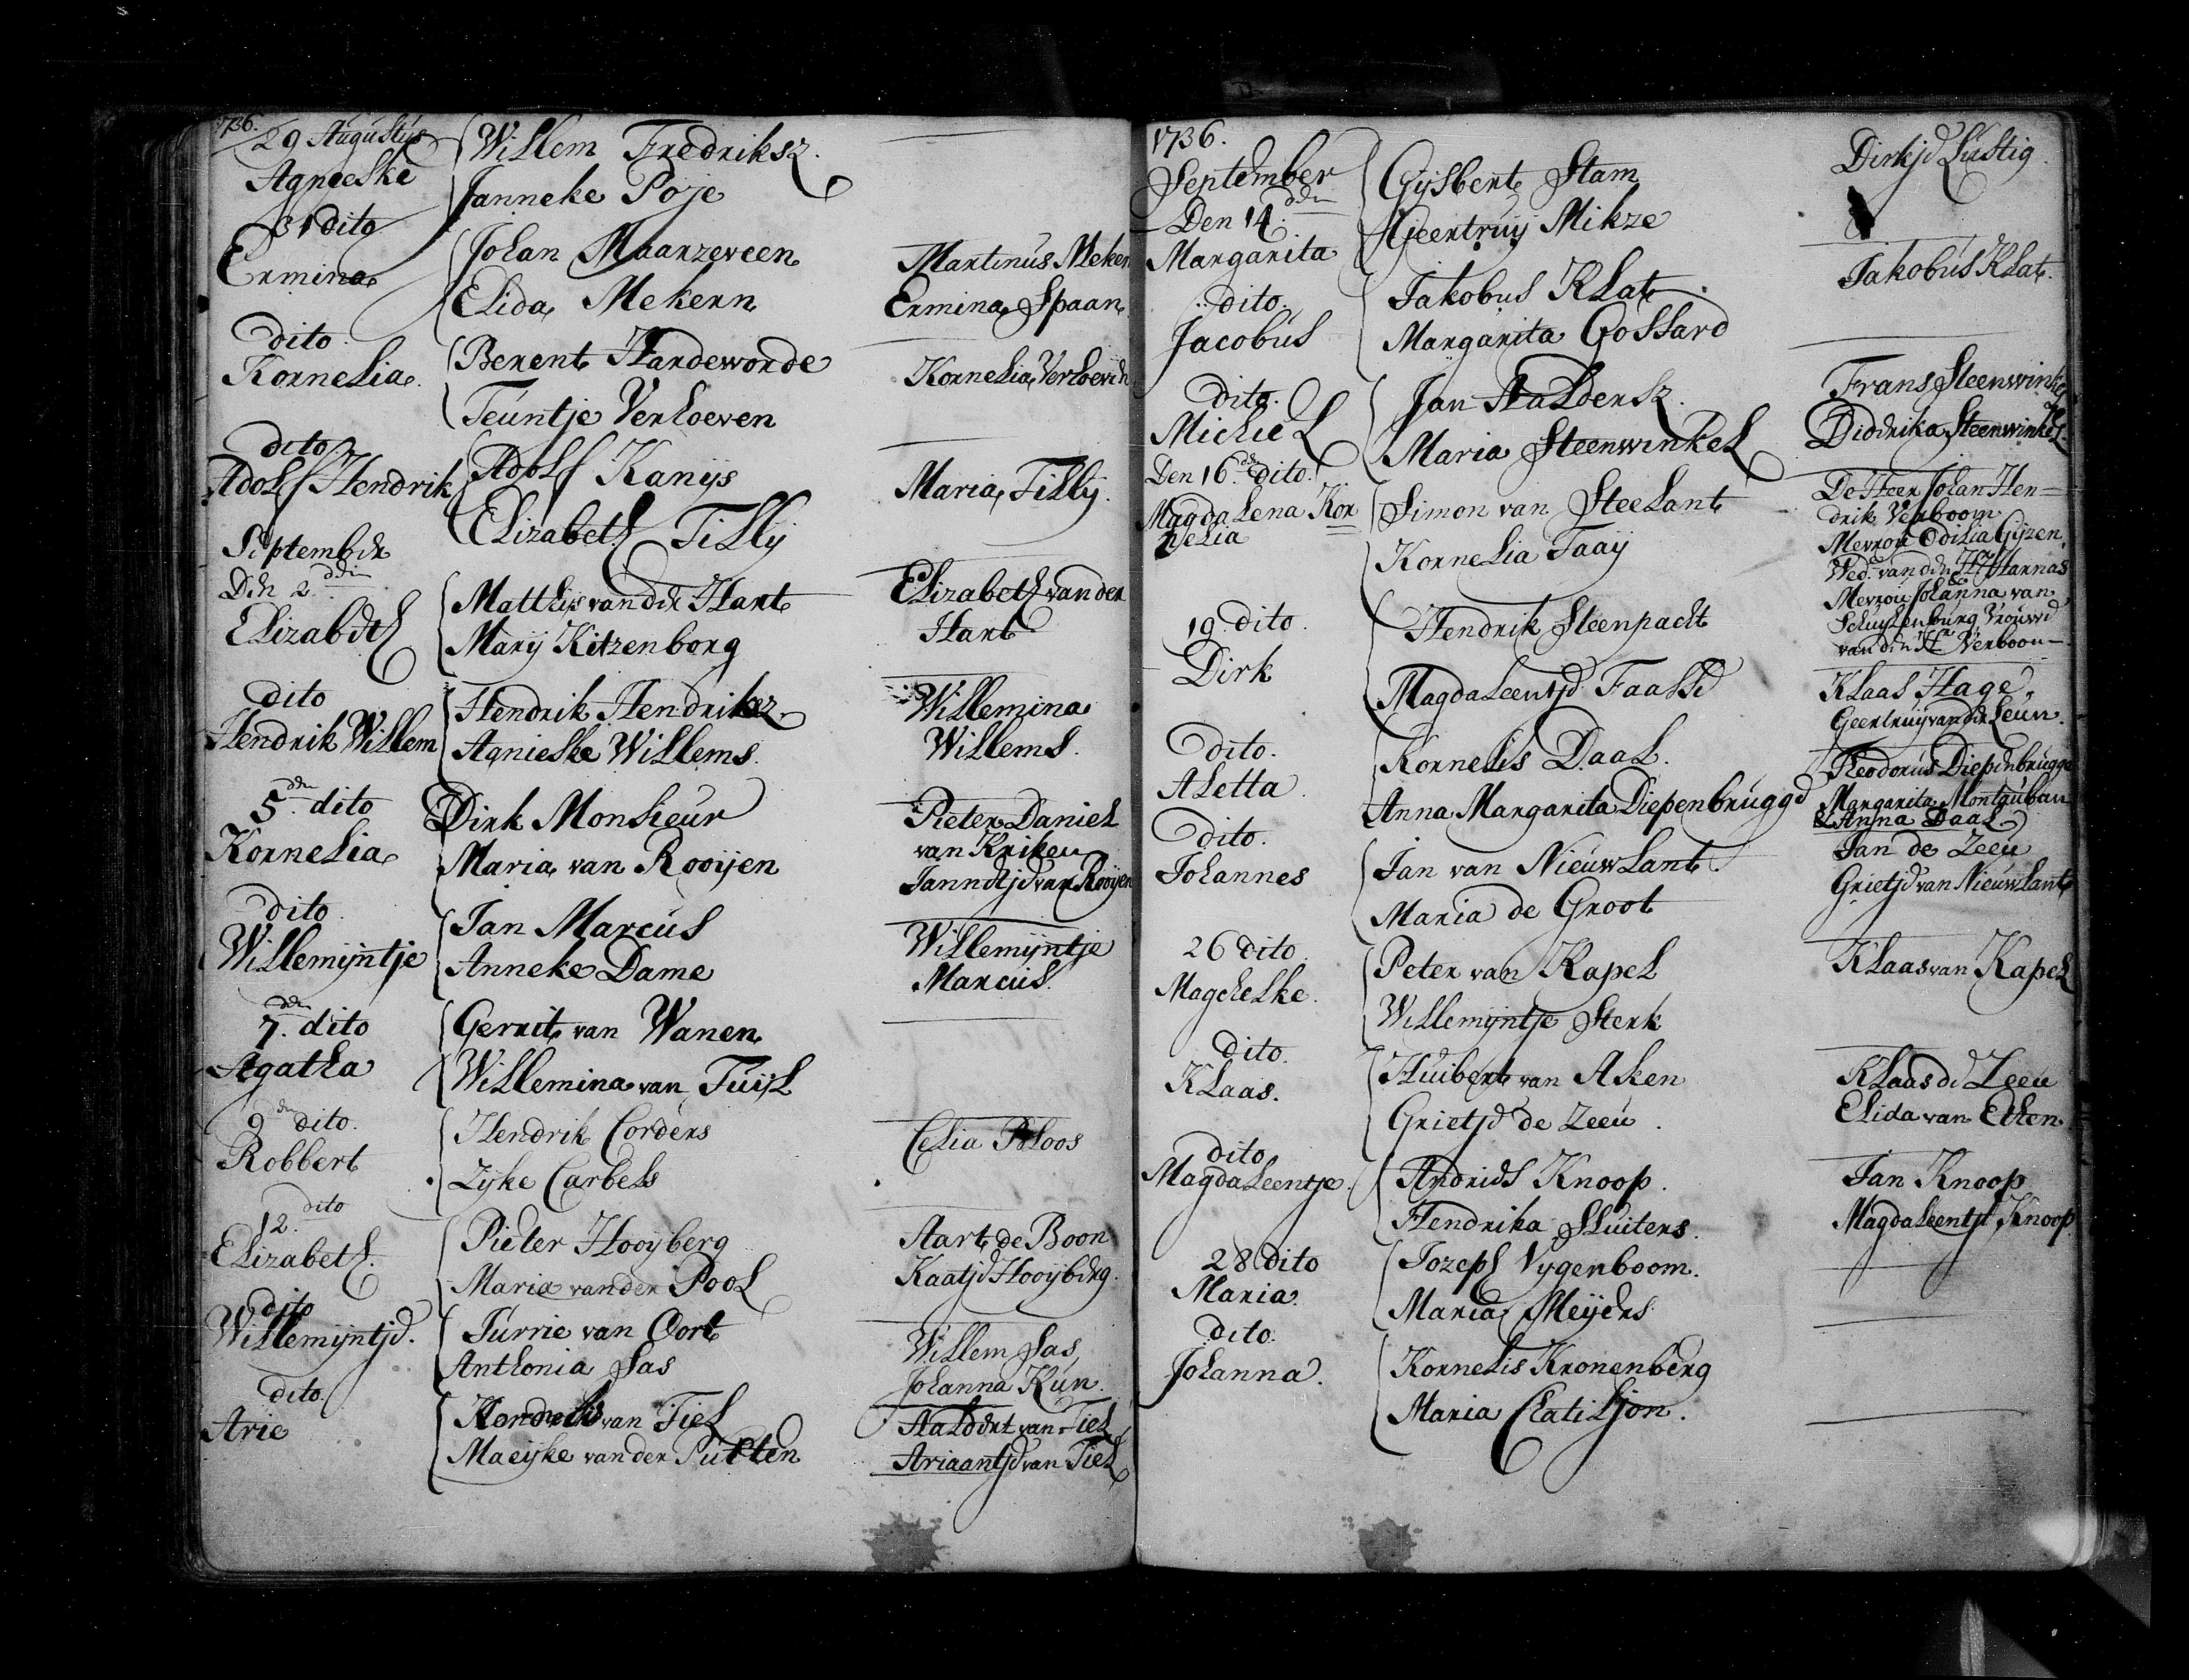 1736.
29 Augustus
Agnieske
Willem Fredriksz.
Janneke Poje
31 dito
Ermina
Johan Maarzeveen
Elida Mekern
Martinus Meker
Ermina Spaan
dito.
Kornelia.
Berent Hardeworde
Teuntje Verhoeven
Kornelia Verhoeven
dito
Adolf Hendrik
Adolf Kanijs
Elizabeth Tilly
Maria Tilly.
September
Den 2 den
Elizabeth
Matthijs van der Hart
Marij Kitzenborg
Elizabeth van der
Hart
dito
Hendrik Willem
Hendrik Hendriksz.
Agnieske Willems.
Willemina
Willems.
5 den dito
Kornelia
Dirk Monsieur
Maria van Rooijen
Pieter Daniel
van Kriken
Jannetje van Rooijen
dito.
Willemijntje
Jan Marcus
Anneke Dame
Willemijntje
Marcus.
7. den dito
Agatha
Gerrit van Wanen
Willemina van Tuijl
9 den dito.
Robbert
Hendrik Corders
Zijke Carbels
Celia Bloos
12. dito
Elizabeth.
Pieter Hooijberg
Maria van der Pool
Aart de Boon
Kaatje Hooijberg.
dito
Willemijntje.
Jurrie van Oort
Anthonia Sas
Willem Sas
Johanna Kun.
dito
Arie
Kornelis van Tiel
Maeijke van der Putten
Aaldert van Tiel
Ariaantje van Tiel
1736.
September
Den 14. den
Margarita
Gijsbert Stam
Geertruij Mikze
Dirkje Lustig.
dito.
Jacobus
Jakobus Klat.
Margarita Gossard
Jakobus Klat.
dito.
Michiel
Jan Aaldersz.
Maria Steenwinkel
Frans Steenwinkel
Diddrika Steenwinkel.
Den 16. den dito.
Magdalena Kor=
nelia
Simon van Steelant
Kornelia Taaij
De Heer Johan Hen=
drik Verboom
Mevrou Odilia Gijzen,
Wed. van den Hr. Harnas
Mevrou Johanna van
Schuylenburg Vrouwe
van den Hr Verboom
19. dito.
Dirk
Hendrik Steenpacht
Magdaleentje Faasse
Klaas Hage,
Geertruij van der Leun.
dito.
Aletta.
Kornelis Daal.
Anna Margarita Diepenbrugge
Theodorus Diepenbrugge
Margarita Montauban
& Anna Daal
dito.
Johannes
Jan van Nieuwlant.
Maria de Groot
Jan de Zeeu
Grietje van Nieuwlant
26 dito.
Magchelke.
Peter van Kapel
Willemijntje Sterk
Klaas van Kapel
dito.
Klaas.
Huibert van Aken
Grietje de Zeeu.
Klaas de Zeeu
Elida van Ecken.
dito
Magdaleentje.
Andries Knoop.
Hendrika Sluiters.
Jan Knoop
Magdaleentje Knoop.
28 dito
Maria.
Jozeph Vygenboom.
Maria Meijers
dito.
Johanna.
Kornelis Kronenberg
Maria Chatiljon.